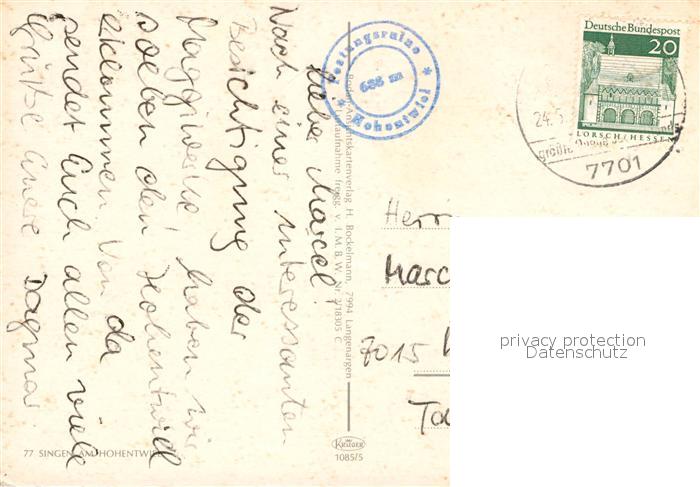 Lieber Marcel!
Nach einer interessanten
Besichtigung der
Maggiwerke haben wir
soeben den Hohentwiel
erklommen. Von da
sendet Euch allen viele
Grüße Eure Dagmar.
77 SINGEN AM HOHENTWIEL
Festungsruine
686 m
* Hohentwiel *
Ansichtskartenverlag H. Bockelmann, 7994 Langenargen
freigg. v. I.M.B.W. Nr. 2/18305 C
KRÜGER
1085/5
Deutsche Bundespost
20
LORSCH/HESSEN
24.5
7701
Herrn
Marc
7015
privacy protection
Datenschutz